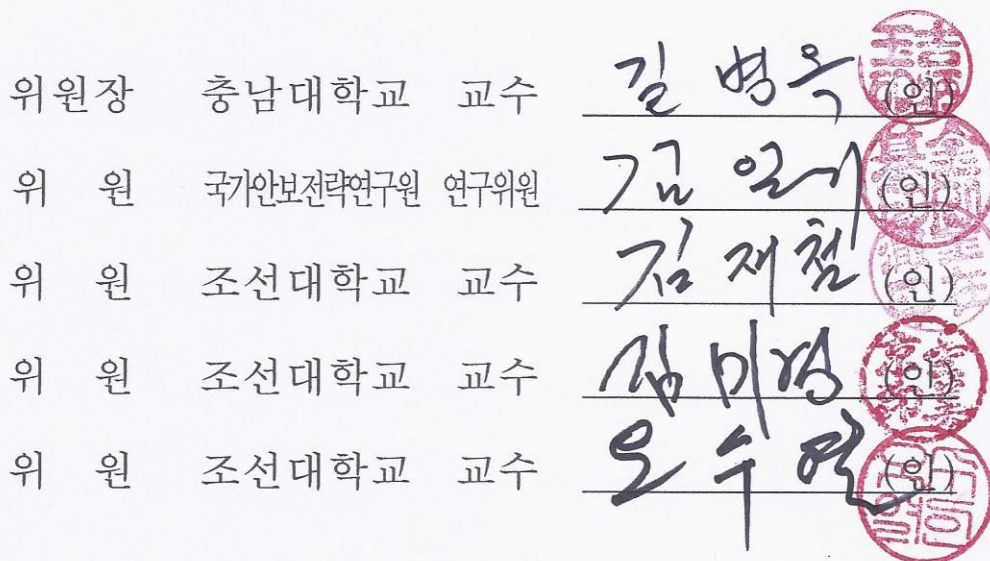 위원장 충남대학교 교수 길병옥 (인)
위 원 국가안보전략연구원 연구위원 김일기 (인)
위 원 조선대학교 교수 김재철 (인)
위 원 조선대학교 교수 김미경 (인)
위 원 조선대학교 교수 오수열 (인)